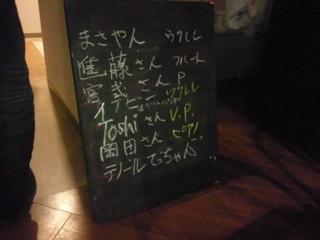 まさやん ウクレレ
進藤さん フルート
宮武さん P
イデビ ウクレレ
Toshiさん V.P.
岡田さん ピアノ
テノールてっちゃん